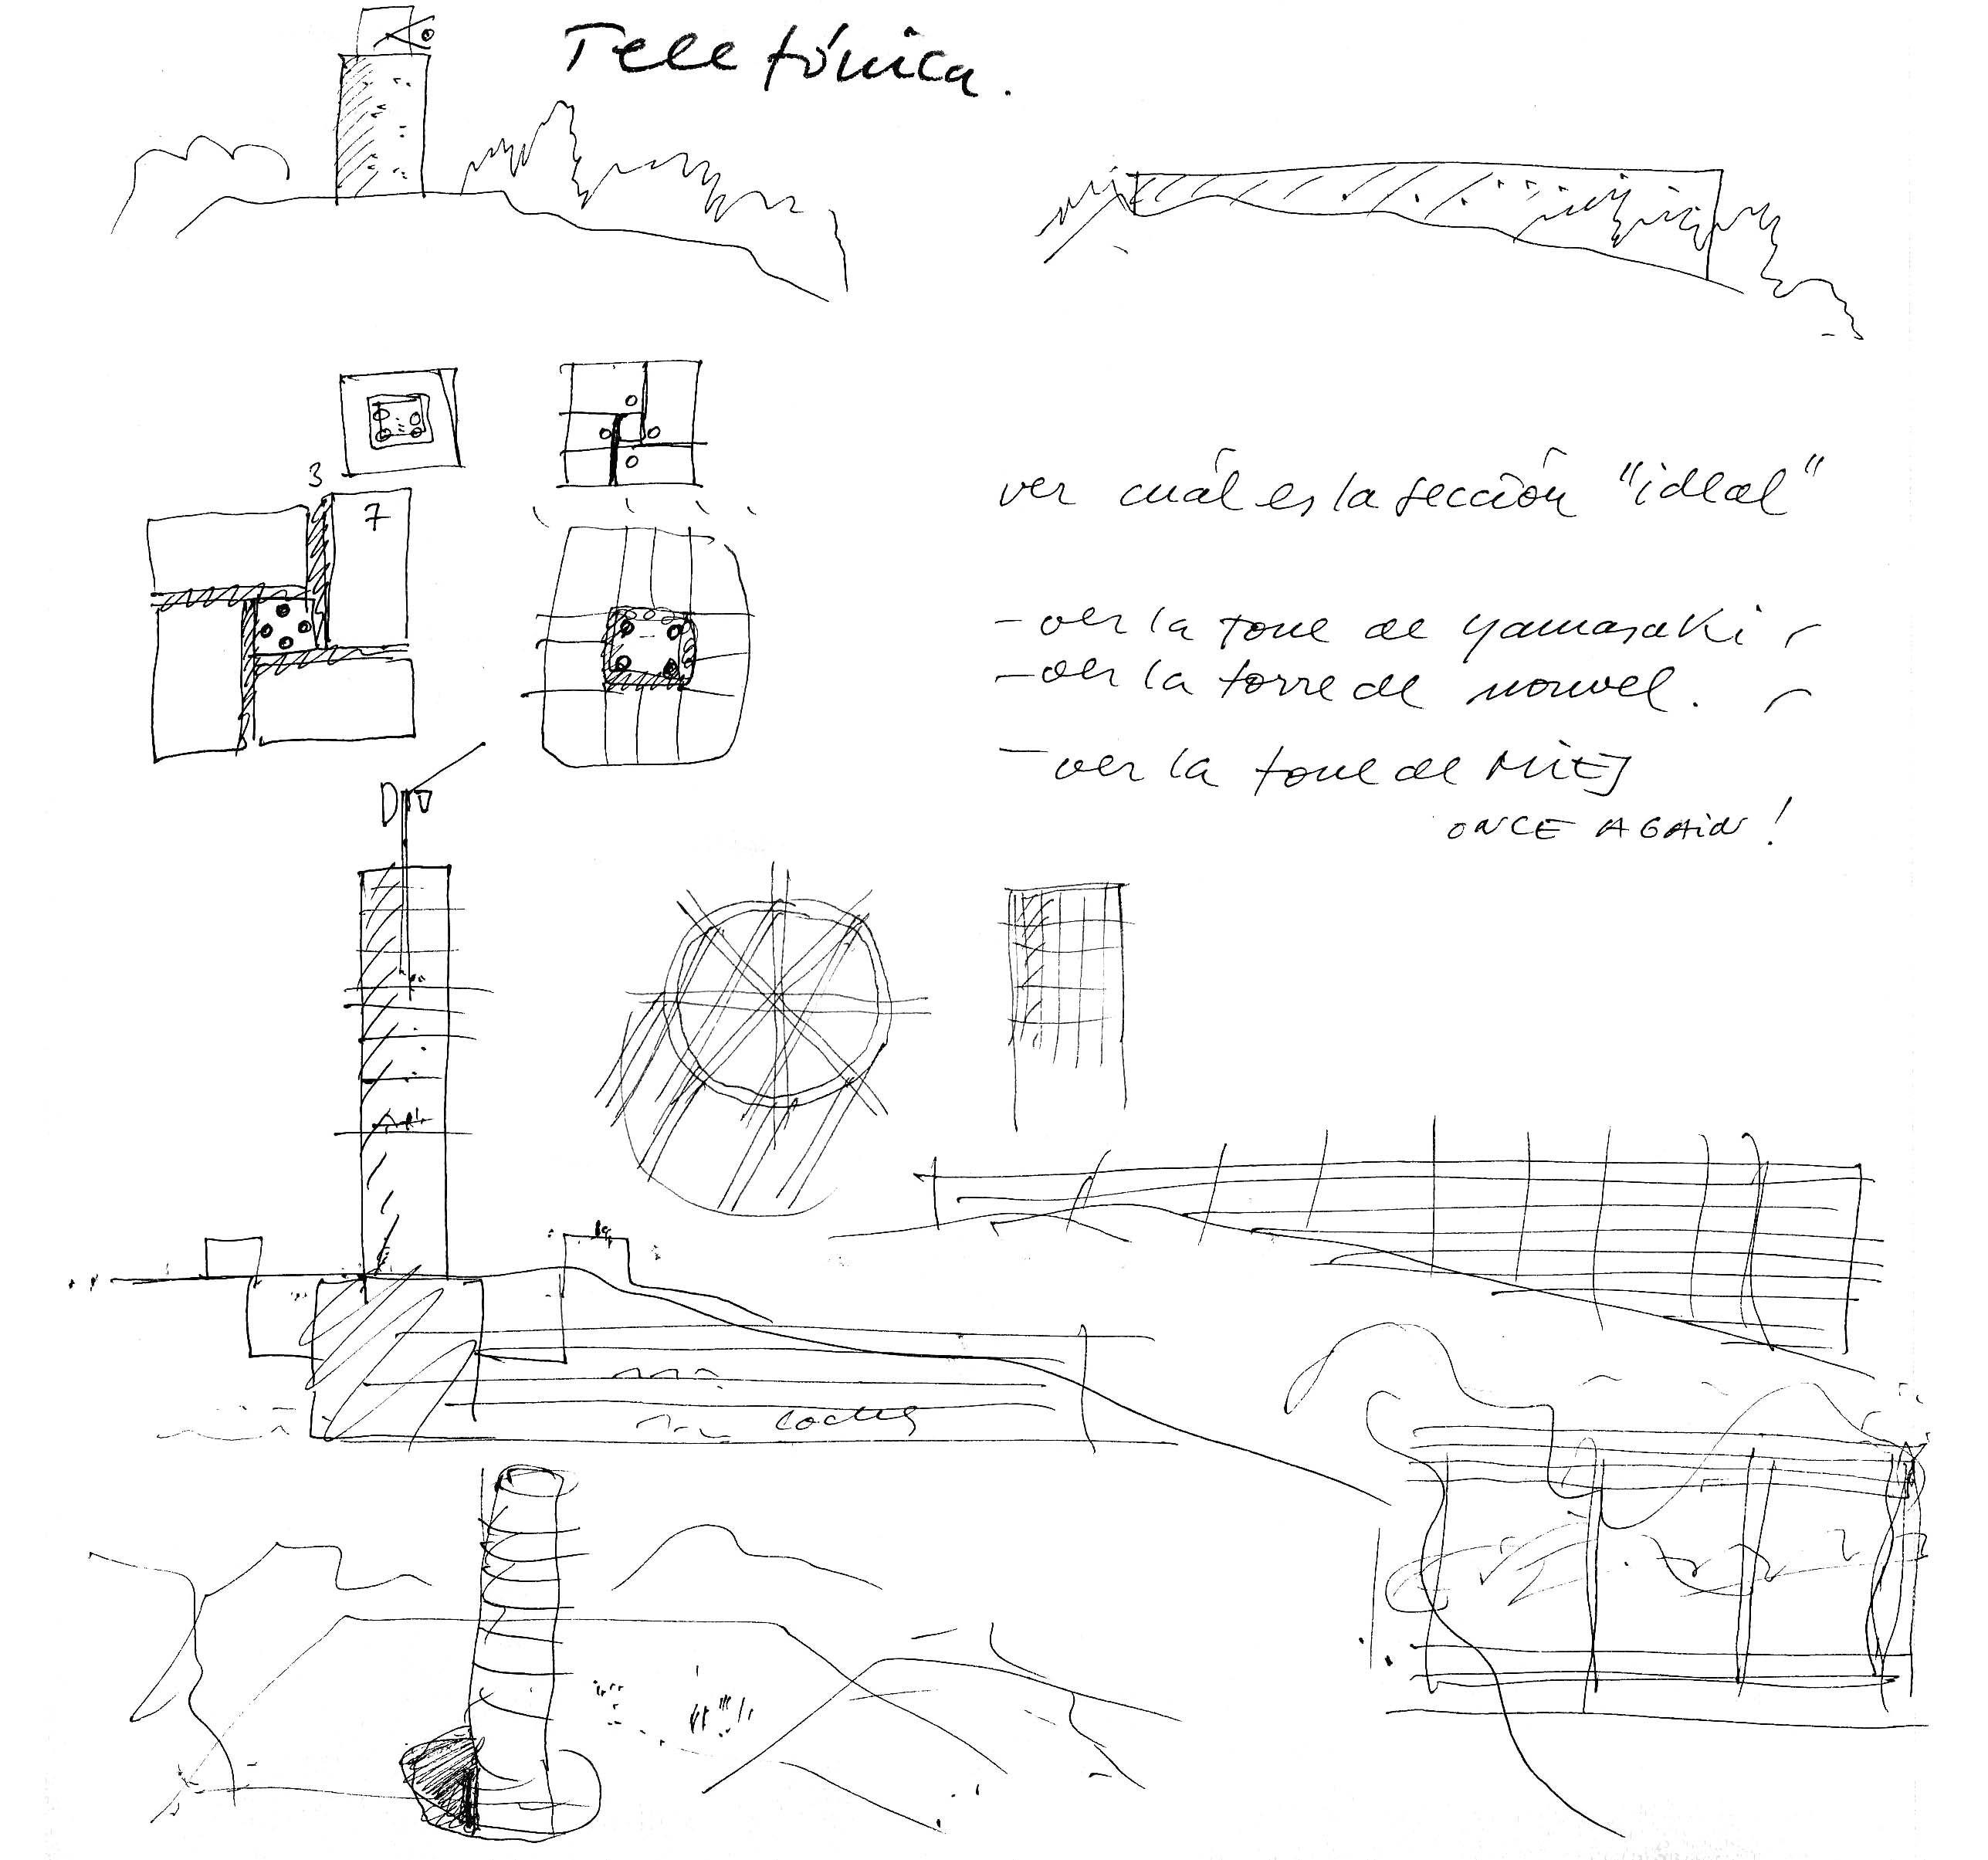 Telefónica.
3
7
ver cuál es la sección "ideal"
- ver la torre de yamasaki
- ver la torre de nouvel.
- ver la torre de MiES
ONCE AGAiN!
coches